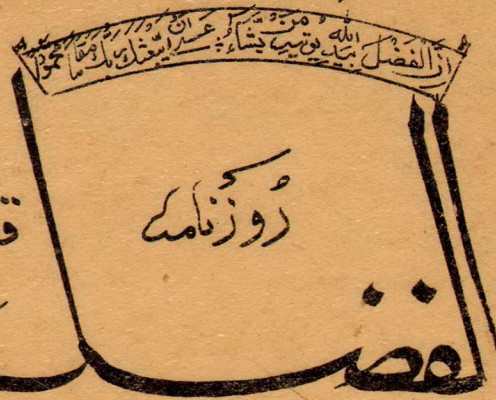 ان الفضل بيد الله يوتيه من يشاء عسى ان يبعثك ربك مقاما محمودا
روزنامہ
الفضل